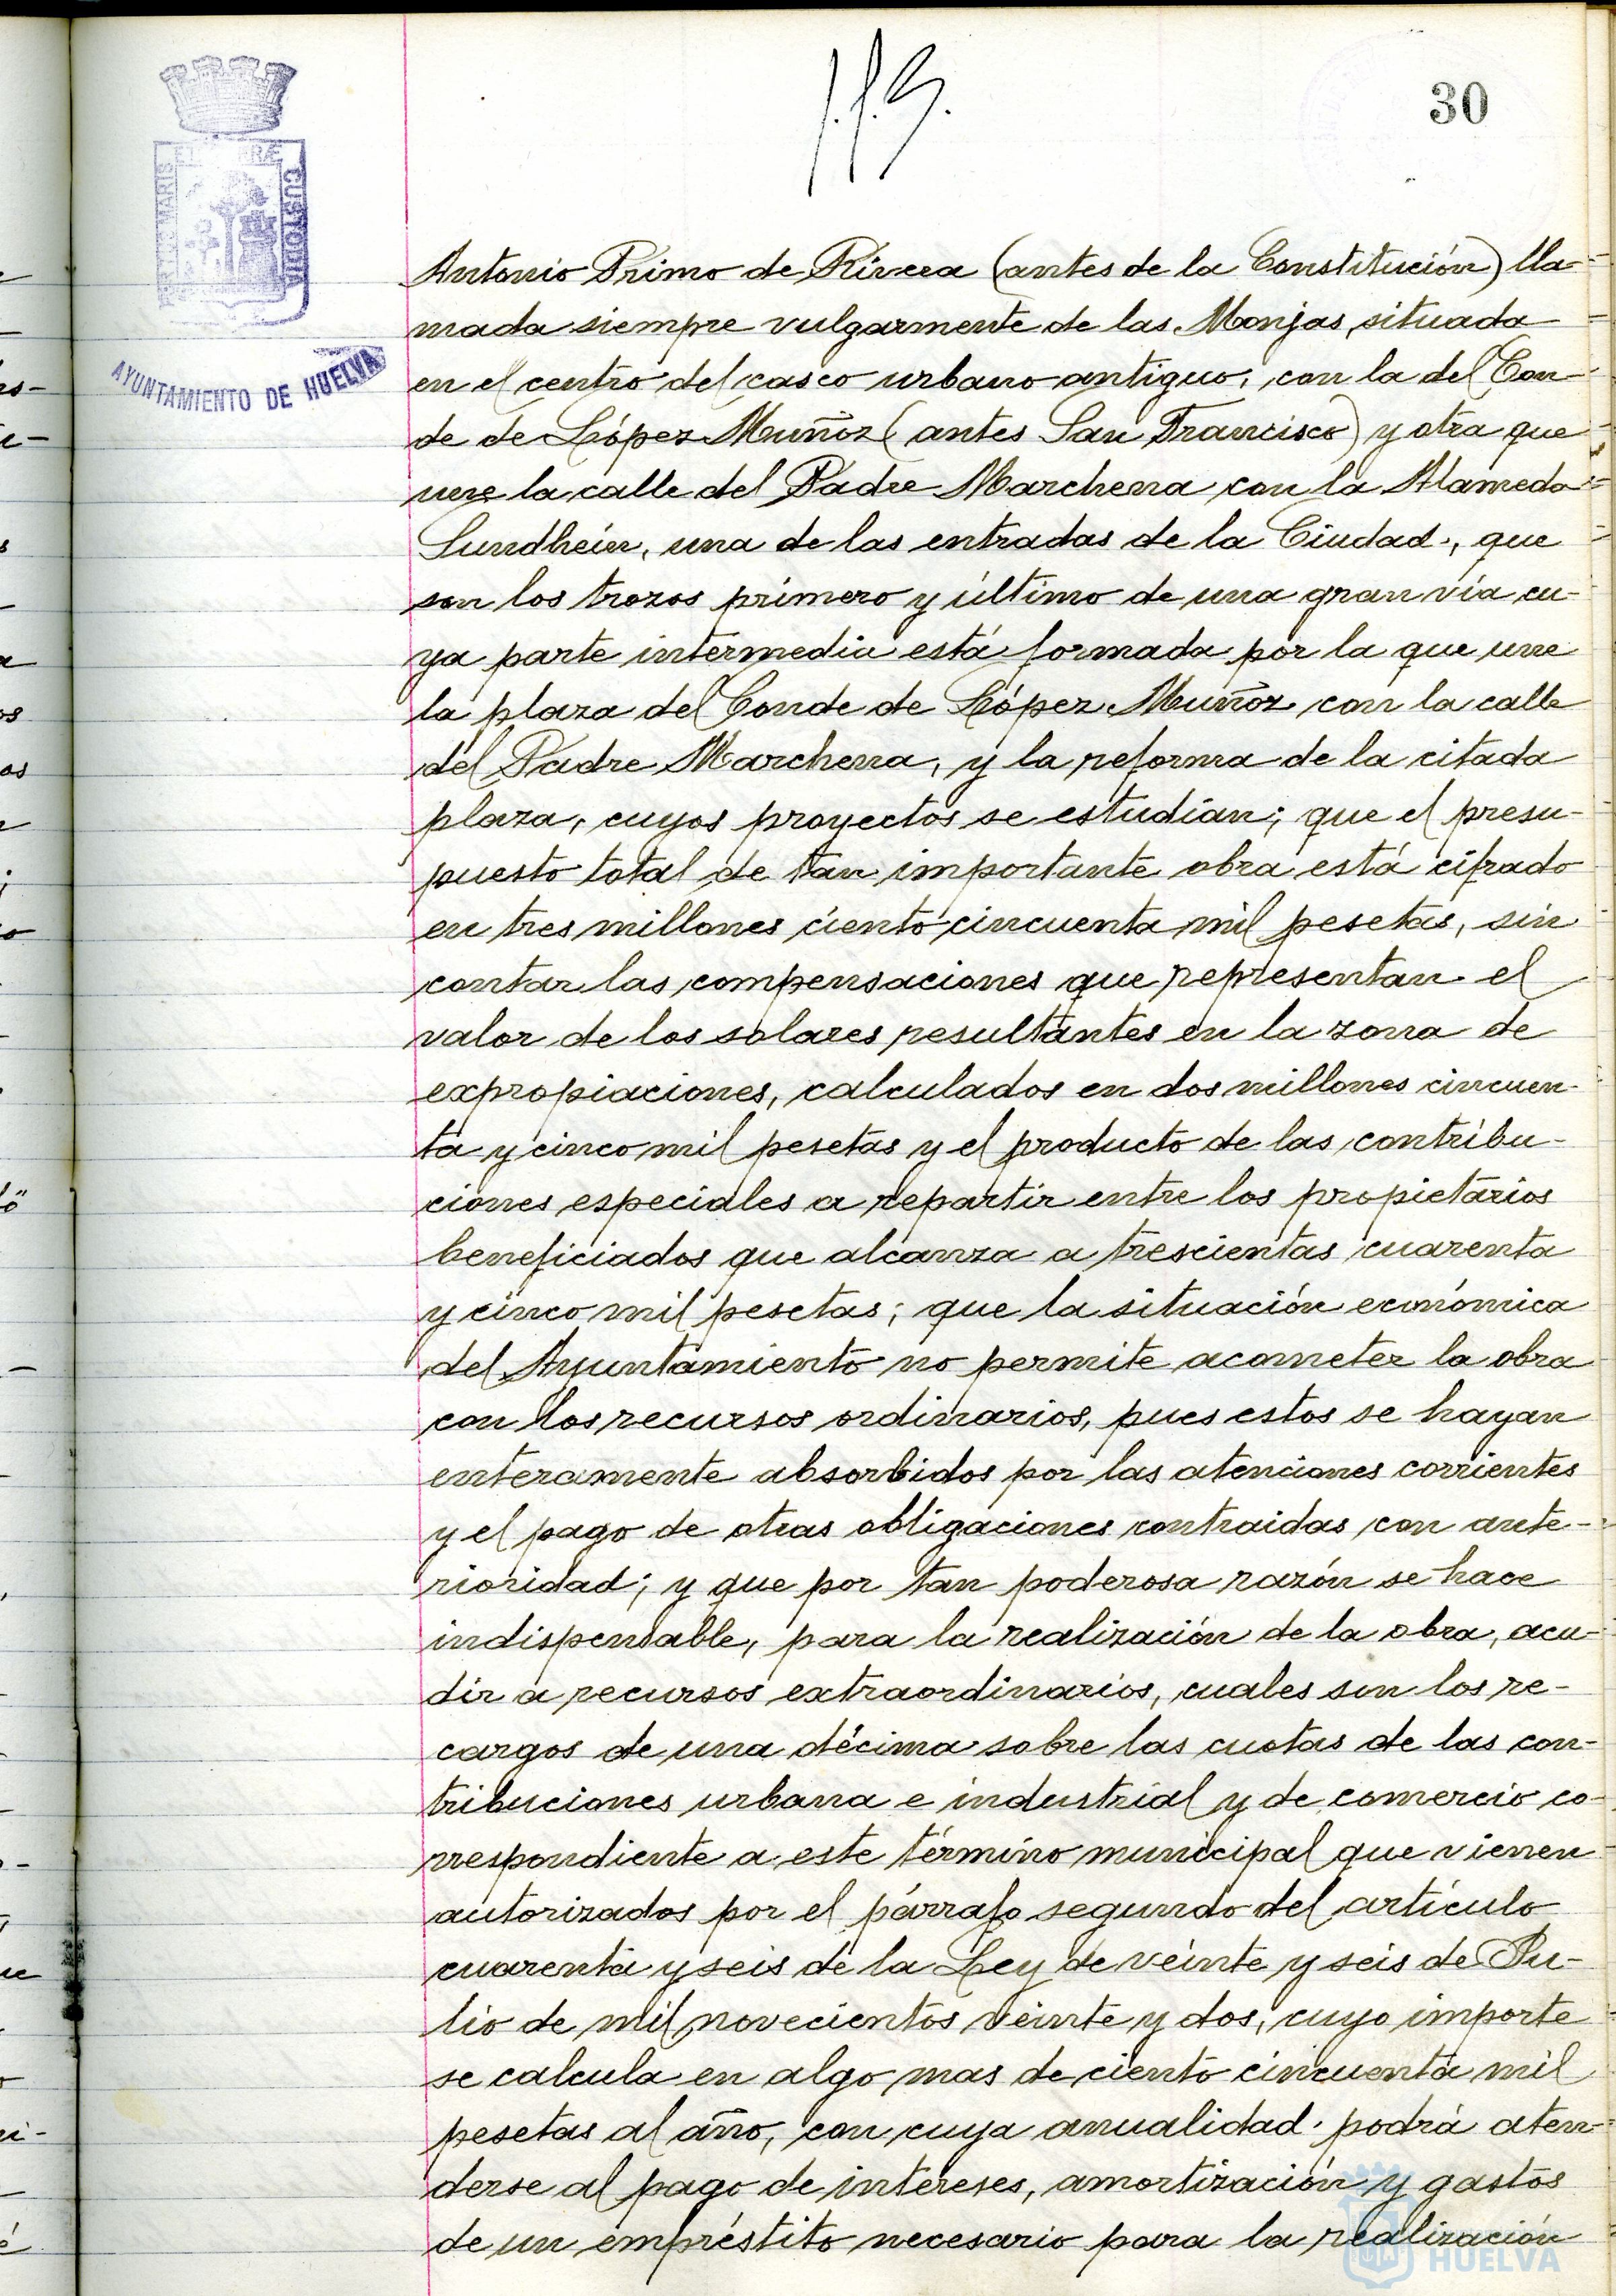 30
PORTUS MARIS ET TERRÆ CUSTODIA
AYUNTAMIENTO DE HUELVA
Antonio Primo de Rivera (antes de la Constitución) lla-
mada siempre vulgarmente de las Monjas, situada
en el centro del casco urbano antiguo, con la del Con-
de de López Muñoz (antes San Francisco) y otra que
une la calle del Padre Marchena con la Alameda
Sundhein, una de las entradas de la Ciudad, que
son los trozos primero y último de una gran vía cu-
ya parte intermedia está formada por la que une
la plaza del Conde de López Muñoz con la calle
del Padre Marchena, y la reforma de la citada
plaza, cuyos proyectos se estudian; que el presu-
puesto total de tan importante obra está cifrado
en tres millones ciento cincuenta mil pesetas, sin
contar las compensaciones que representan el
valor de los solares resultantes en la zona de
expropiaciones, calculados en dos millones cincuen-
ta y cinco mil pesetas y el producto de las contribu-
ciones especiales a repartir entre los propietarios
beneficiados que alcanza a trescientas cuarenta
y cinco mil pesetas; que la situación económica
del Ayuntamiento no permite acometer la obra
con los recursos ordinarios, pues estos se hayan
enteramente absorbidos por las atenciones corrientes
y el pago de otras obligaciones contraidas con ante-
rioridad; y que por tan poderosa razón se hace
indispensable, para la realización de la obra, acu-
dir a recursos extraordinarios, cuales son los re-
cargos de una décima sobre las cuotas de las con-
tribuciones urbana e industrial y de comercio co-
rrespondiente a este término municipal que vienen
autorizados por el párrafo segundo del artículo
cuarenta y seis de la Ley de veinte y seis de Ju-
lio de mil novecientos veinte y dos, cuyo importe
se calcula en algo mas de ciento cincuenta mil
pesetas al año, con cuya anualidad podrá aten-
derse al pago de intereses, amortización y gastos
de un empréstito necesario para la realización
HUELVA